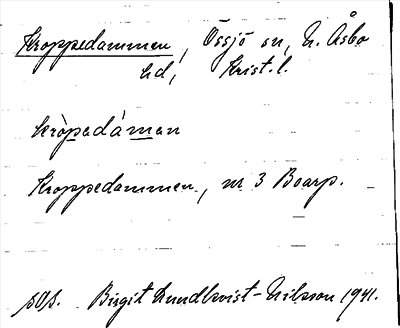 Kroppedammen, Össjö sn, N. Åsbo
hd, Krist. l.
kròpadámən
Kroppedammen, nr 3 Boarp.
Birgit Lundkvist-Nilsson 1941.